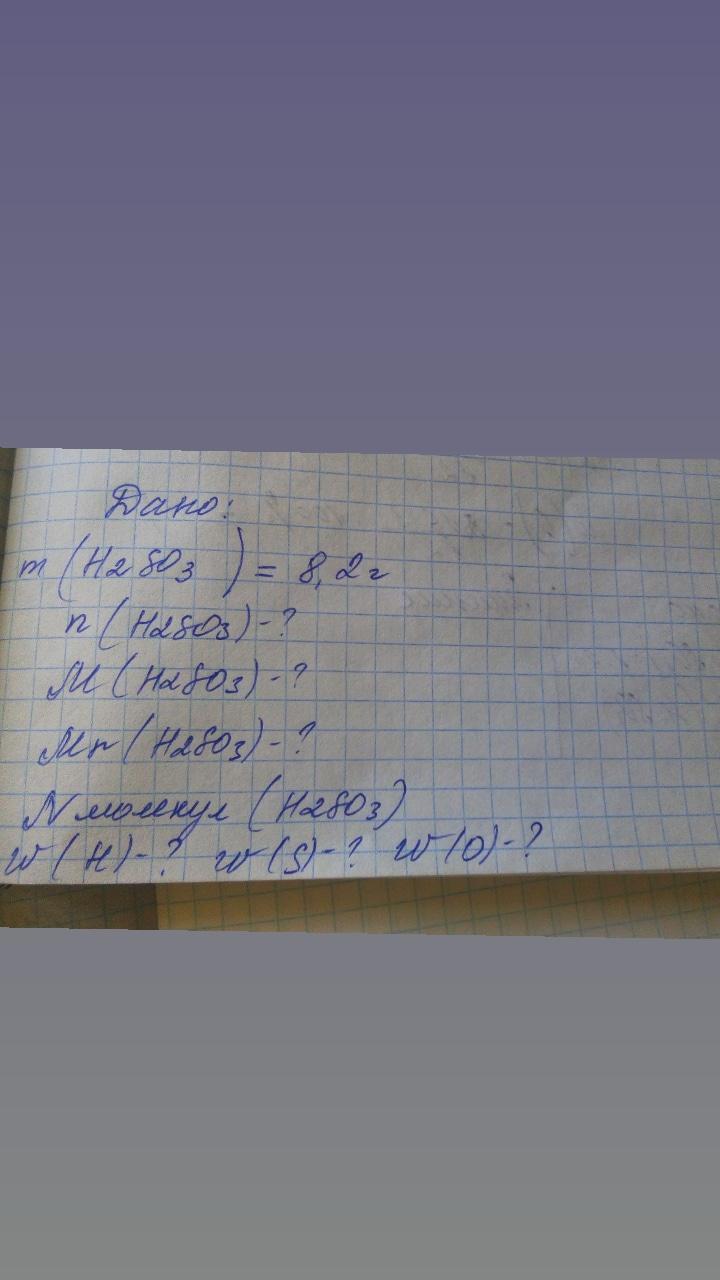 Дано:
m (H2SO3) = 8,2 г
n (H2SO3) - ?
M (H2SO3) - ?
Mr (H2SO3) - ?
N молекул (H2SO3)
W (H) - ? W (S) - ? W (O) - ?